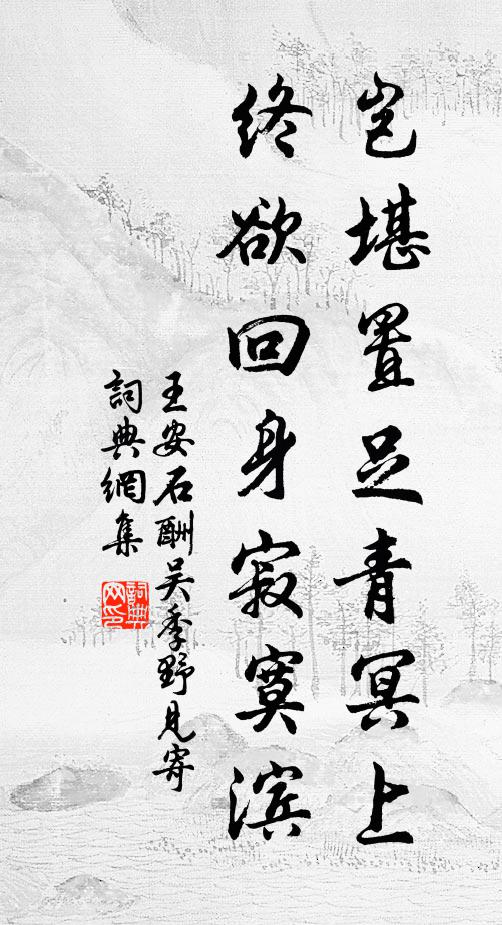 岂堪置足青冥上
终欲回身寂寞滨
王安石酬吴季野见寄
詞典網集
詞典网印